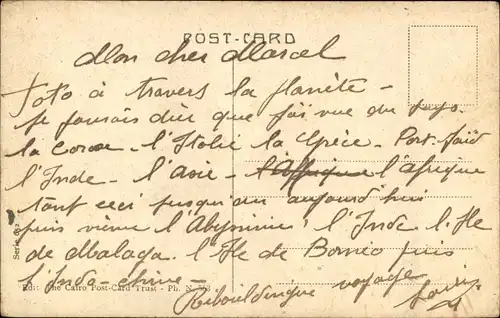 POST-CARD
Mon cher Marcel
Toto à travers la planète -
je pourrais dire que j'ai vu du pays
la Corse l'Italie la Grèce - Port-Saïd
l'Inde - l'Asie - l'Affrique l'afrique
tout ceci jusqu'au aujourd'hui
puis vienne l'Abyssinie, l'Inde l'Ile
de Malaga. l'Ile de Bornéo puis
l'Indo-chine -
voyage
Serie
Edit. The Cairo Post-Card Trust - Ph. N.